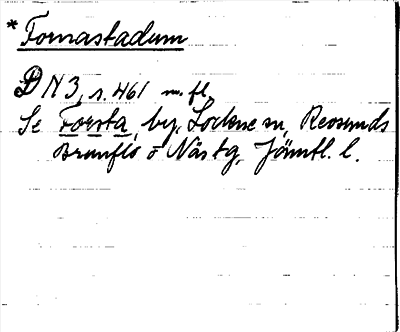 *Fornastadum
DN 3, s. 461 m. fl.
Se Forsta, by, Lockne sn, Revsunds
Brunflo o Näs tg, Jämtl. l.